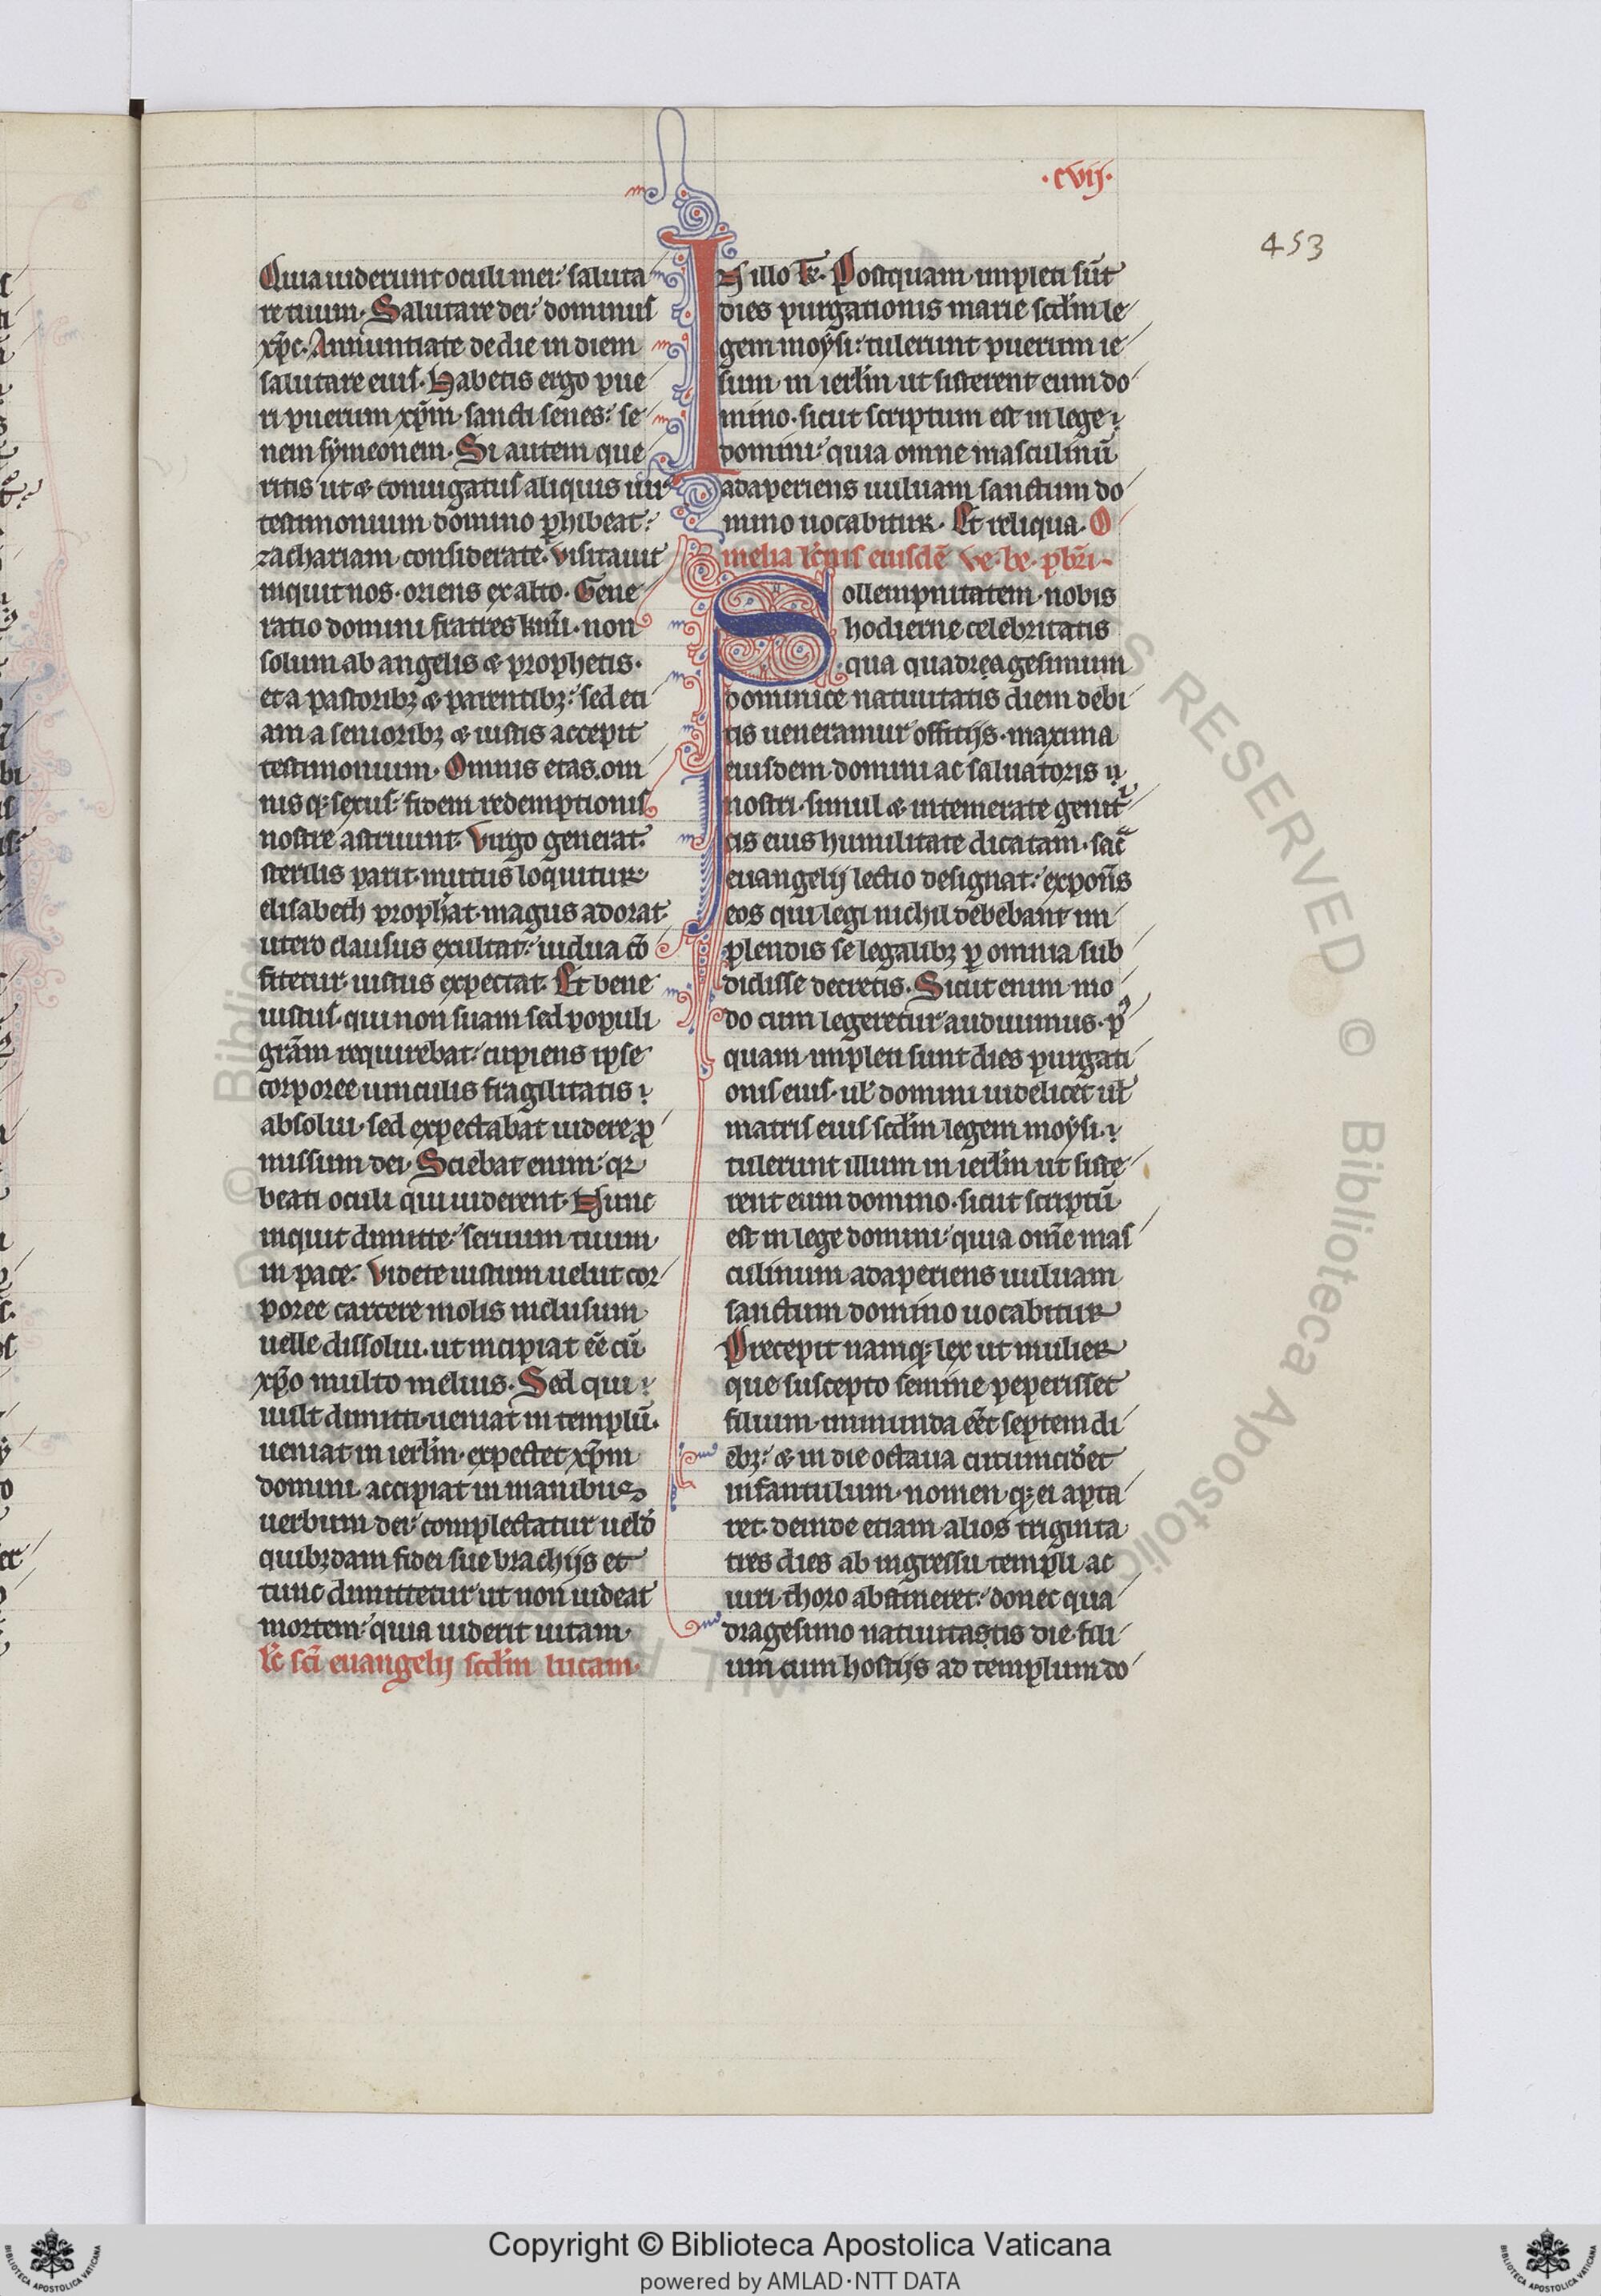 ·cvij·
453
Quia uiderunt oculi mei: saluta
re tuum. Salutare dei: dominus
xp̄c. Annuntiate de die in diem
salutare eius. Habetis ergo pue
ri puerum xp̄m. sancti senes: se
nem sẏmeonem. Si autem que
ritis ut & coniugatus aliquis uir
testimonium domino phibeat:
zachariam considerate. Visitauit
inquit nos. oriens ex alto. Gene
ratio domini fratres kmi. non
solum ab angelis & prophetis.
et a pastoribꝫ & parentibꝫ: sed eti
am a senioribꝫ & iustis accepit
testimonium. Omnis etas. om
nis qꝫ sexus: fidem redemptionis
nostre astruunt. Virgo generat.
sterilis parit. mutus loquitur
elisabeth prophat. magus adorat.
utero clausus exultat: uidua cō
fitetur. iustus expectat. Et bene
iustus. qui non suam sed populi
grām requirebat: cupiens ipse
corporee uinculis fragilitatis
absolui. sed expectabat uidere ꝓ
missum dei. Sciebat enim: qꝛ
beati oculi qui uiderent. Nunc
inquit dimitte: seruum tuum
in pace. Videte iustum uelut cor
poree carcere molis inclusum
uelle dissolui. ut incipiat eē cū
xp̄o multo melius. Sed qui
uult dimitti. ueniat in templū.
ueniat in ierl̄m. expectet xp̄m
domini. accipiat in manibus
uerbum dei: complectatur uelđ
quibꝫdam fidei sue brachijs et
tunc dimittetur ut non uideat
mortem: quia uiderit uitam.
lc̄ sc̄i euangelij scđm lucam.
IN illo t̄e. Postquam impleti sūt
dies purgationis marie scđm le
gem moẏsi: tulerunt puerum ie
sum in ierl̄m ut sisterent eum do
mino. sicut scriptum est in lege
domini: quia omne masculinū
adaperiens uuluam sanctum do
mino uocabitur. Et reliqua. O
melia lc̄nis eiusdē ve. be. pbr̄i
Sollempnitatem nobis
hodierne celebritatis
qua quadreagesimum
dominice natiuitatis diem debi
tis ueneramur offitijs. maxima
eiusdem domini ac saluatoris
nostri. simul & intemerate genit
cis eius humilitate dicatam. sac̄
euangelij lectio designat: expon̄s
eos qui legi nichil debebant im
plendis se legalibꝫ ꝑ omnia sub
didisse decretis. Sicut enim mo
do cum legeretur audiuimus. pꝰ
quam impleti sunt dies purgati
onis eius. ul̄ domini uidelicet ul̄
matris eius scđm legem moẏsi.
tulerunt illum in ierl̄m ut siste
rent eum domino. sicut scriptū
est in lege domini: quia om̄e mas
culinum adaperiens uuluam
sanctum domino uocabitur
Precepit namqꝫ lex ut mulier
que suscepto semine peperisset
filium. inmunda eēt septem di
ebꝫ: & in die octaua circumcid̄et
infantulum. nomen qꝫ ei apta
ret. deinde etiam alios triginta
tres dies ab ingressu templi ac
uiri thoro abstineret: donec qua
dragesimo natiuitastis die. fili
um cum hostijs ad templum do
Copyright © Biblioteca Apostolica Vaticana
powered by AMLAD·NTT DATA